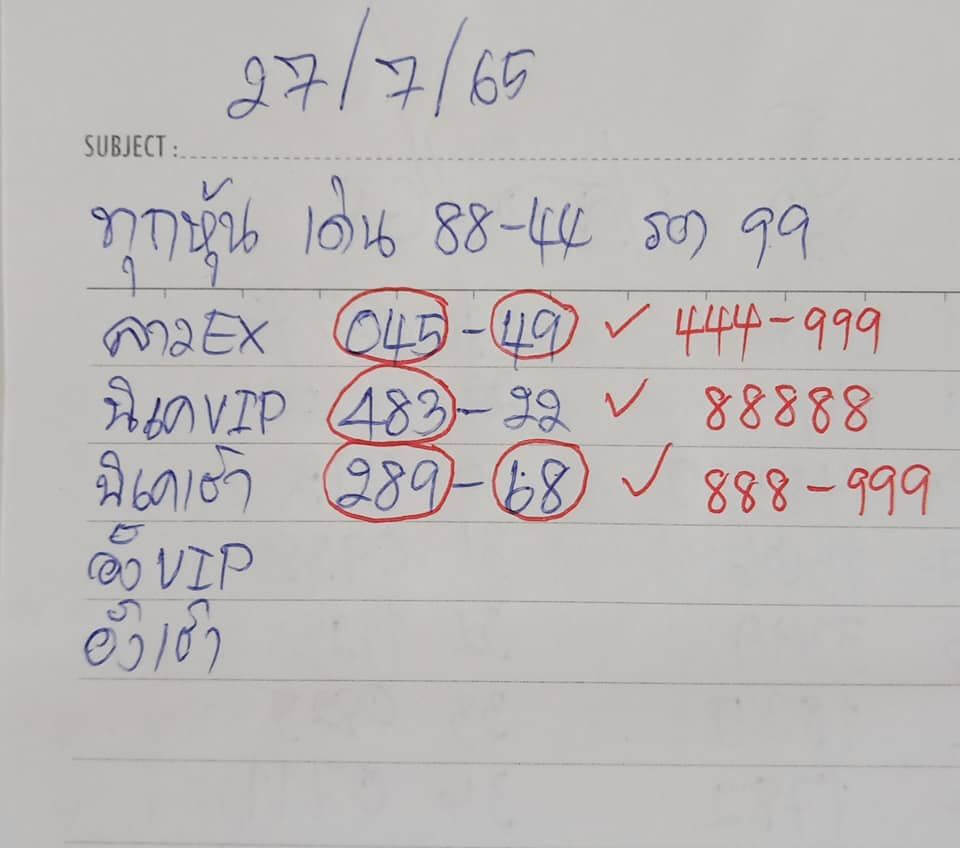 27/7/65
SUBJECT :
ทุกหุ้น เด่น 88-44 รอง 99
ลาวEX 045-49 ✓ 444-999
นิเคVIP 483-22 ✓ 88888
นิเคเช้า 289-68 ✓ 888-999
ฮั่งVIP
ฮั่งเช้า